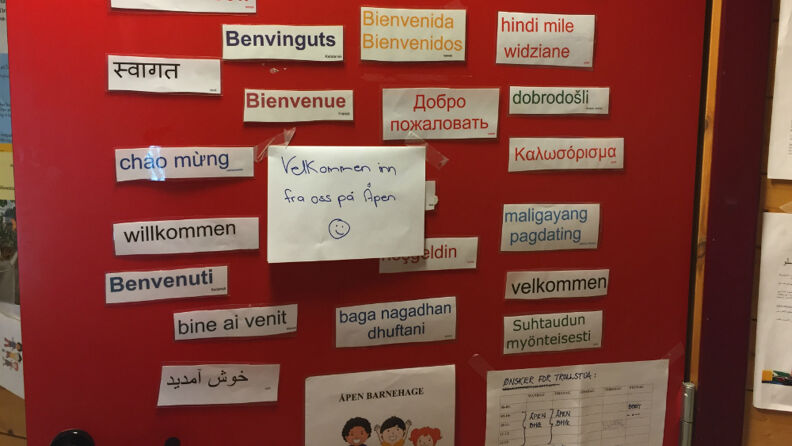 Benvinguts
Bienvenida
Bienvenidos
hindi mile
widziane
स्वागत
Bienvenue
Добро
пожаловать
dobrodošli
chào mừng
Velkommen inn
fra oss på Åpen
Καλωσόρισμα
willkommen
maligayang
pagdating
Benvenuti
velkommen
bine ai venit
baga nagadhan
dhuftani
Suhtaudun
myönteisesti
خوش آمدید
ÅPEN BARNEHAGE
ØNSKER FOR TROLLSTUA:
ÅPEN
ÅPEN